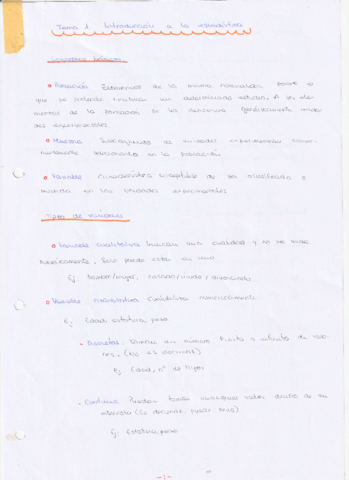 Tema 1. Introducción a la estadística
Conceptos básicos
Población Elementos de la misma naturaleza sobre el
que se pretende realizar un determinado estudio. A los ele
mentos de la población se les denomina genéricamente unida
des experimentales
Muestra Subconjunto de unidades experimentales
seleccionados en la población
Variable Característica susceptible de ser clasificada o
medida en las unidades experimentales
Tipos de variables
Variable cualitativa Indican una cualidad y no se mide
numéricamente. Solo puede estar en uno
Ej: hombre/mujer, casado/viudo/divorciado
Variable cuantitativa Cuantifica numéricamente
Ej: Edad, estatura, peso
- Discretas: Toman un número finito o infinito de valo-
res. (No es decimal)
Ej: Edad, nº de hijos
- Continua: Pueden tomar cualquier valor dentro de su
intervalo (Es decimal)
Ej: Estatura, peso
-1-